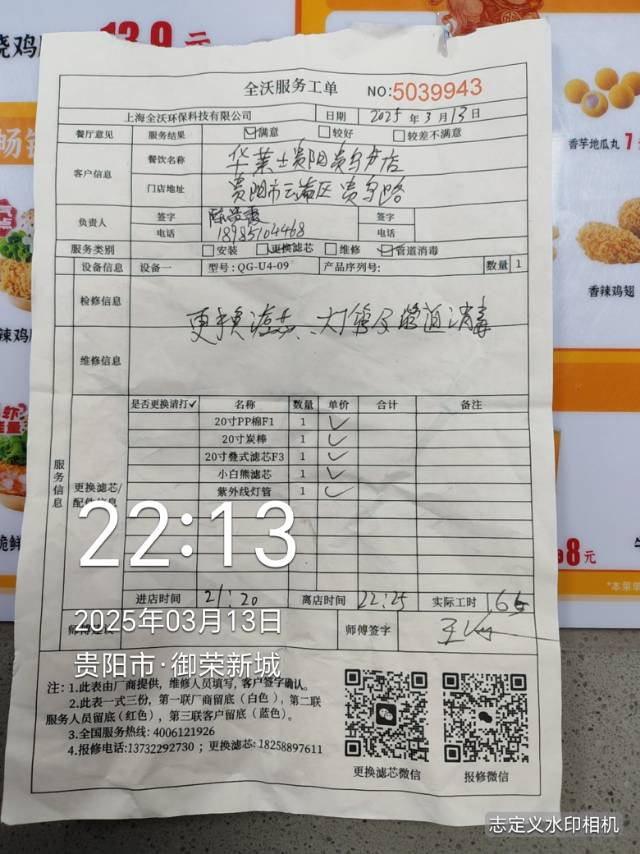 13.9
全沃服务工单 NO:5039943
上海全沃环保科技有限公司 日期 2025年3月13日
餐厅意见 服务结果 满意 较好 较差不满意
客户信息 餐饮名称 华莱士贵阳贵乌店
门店地址 贵阳市云岩区贵乌路
负责人 签字 签字
电话 18985104468 电话
服务类别 安装 更换滤芯 维修 管道消毒
设备信息 设备一 型号:QG-U4-09 产品序列号: 数量 1
检修信息
更换滤芯、灯管及管道消毒
维修信息
是否更换请打✓ 名称 数量 单价 合计 备注
20寸PP棉F1 1 ✓
20寸炭棒 1 ✓
20寸叠式滤芯F3 1 ✓
小白熊滤芯 1 ✓
紫外线灯管 1 ✓
服务信息
更换滤芯/
配件信息
22:13
进店时间 21:20 离店时间 22:25 实际工时 65
2025年03月13日
师傅签字
贵阳市·御荣新城
注:1.此表由厂商提供,维修人员填写,客户签字确认。
2.此表一式三份,第一联厂商留底(白色),第二联
服务人员留底(红色),第三联客户留底(蓝色)。
3.全国服务热线:4006121926
4.报修电话:13732292730;更换滤芯:18258897611
更换滤芯微信 报修微信
香芋地瓜丸 7
香辣鸡翅
8元
志定义水印相机